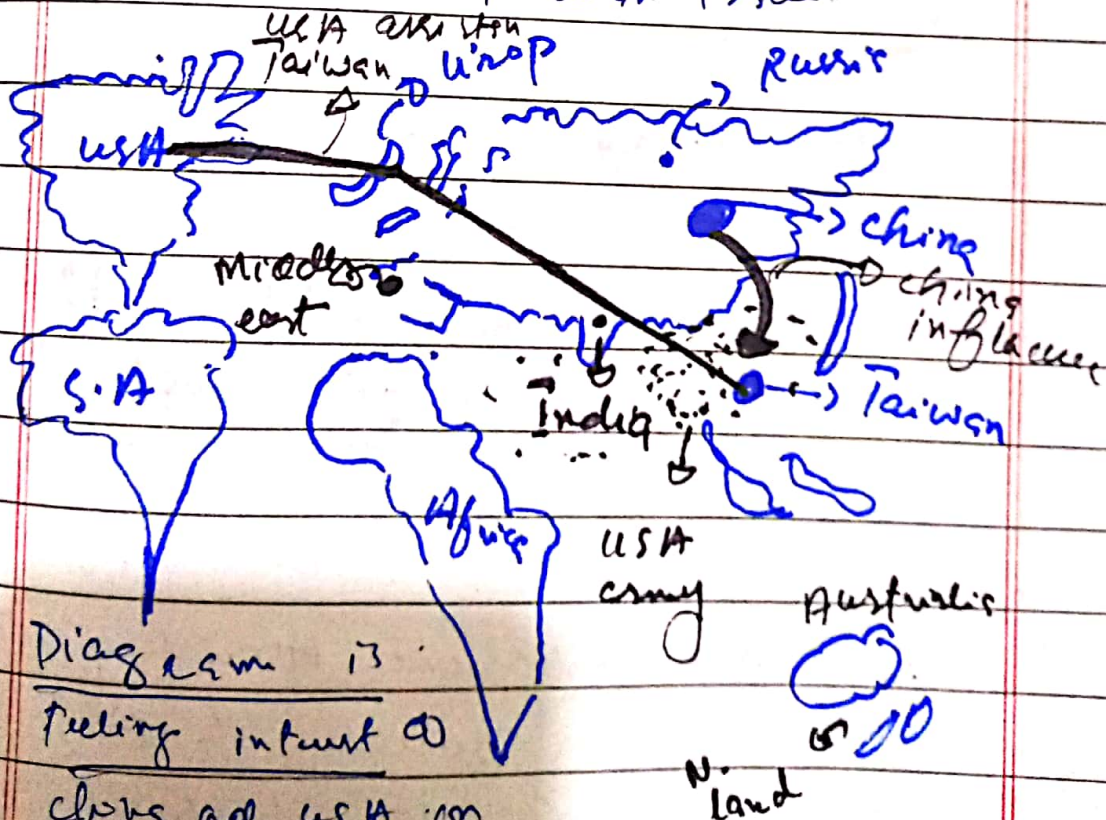 USA assisten
Taiwan
Urop
Russia
USA
China
Middle
east
China
influence
S.A
India
Taiwan
Africa
USA
army
Australia
Diagram is
teeling intrust of
China and USA on
N.
land